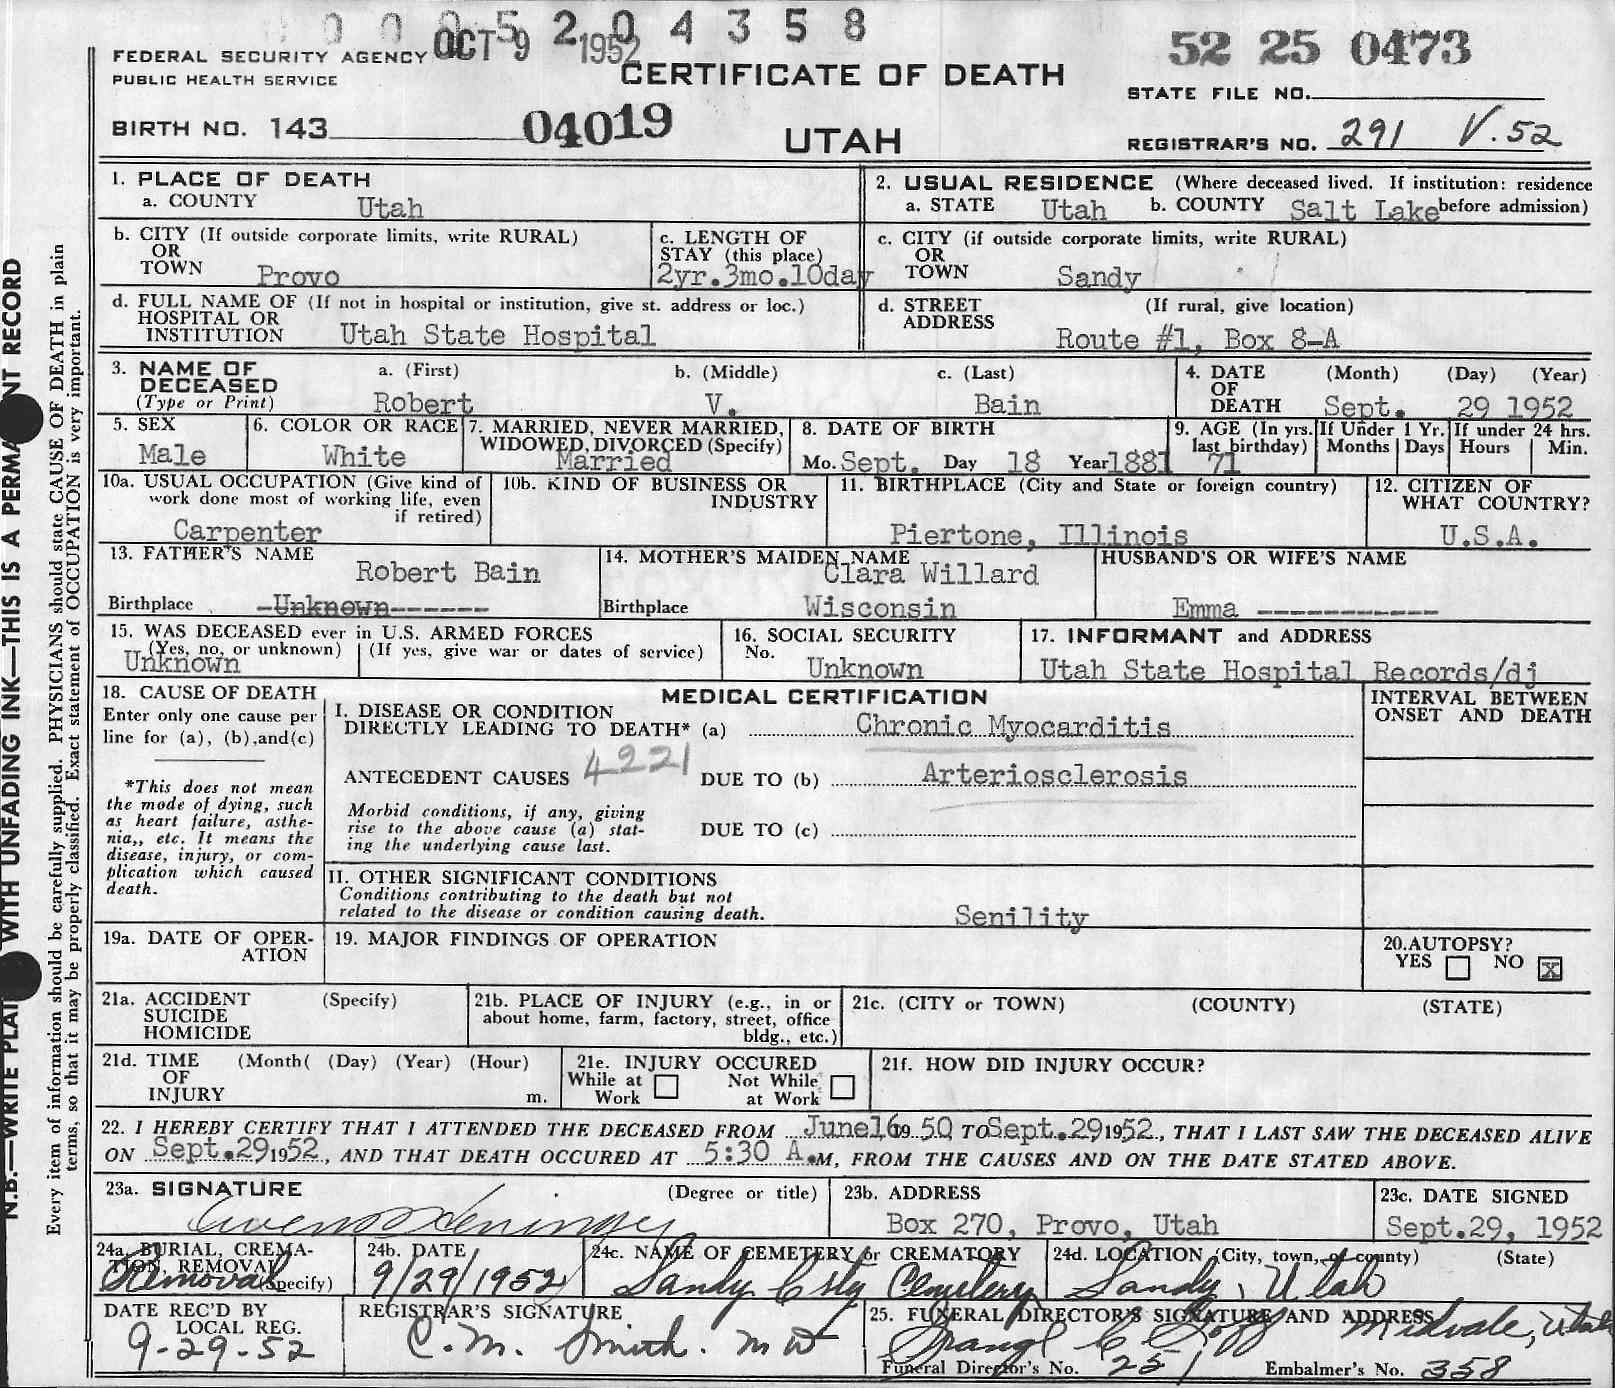 0 0 0 5 2 0 4 3 5 8
FEDERAL SECURITY AGENCY OCT 9 1952
PUBLIC HEALTH SERVICE
CERTIFICATE OF DEATH
52 25 0473
STATE FILE NO.
BIRTH NO. 143 04019
UTAH
REGISTRAR'S NO. 291 V.52
1. PLACE OF DEATH
a. COUNTY Utah
2. USUAL RESIDENCE (Where deceased lived. If institution: residence
a. STATE Utah b. COUNTY Salt Lake before admission)
b. CITY (If outside corporate limits, write RURAL)
OR
TOWN Provo
c. LENGTH OF
STAY (this place)
2yr.3mo.10day
c. CITY (if outside corporate limits, write RURAL)
OR
TOWN Sandy
d. FULL NAME OF (If not in hospital or institution, give st. address or loc.)
HOSPITAL OR
INSTITUTION Utah State Hospital
d. STREET (If rural, give location)
ADDRESS
Route #1, Box 8-A
3. NAME OF a. (First) b. (Middle) c. (Last)
DECEASED
(Type or Print) Robert V. Bain
4. DATE (Month) (Day) (Year)
OF
DEATH Sept. 29 1952
5. SEX
Male
6. COLOR OR RACE
White
7. MARRIED, NEVER MARRIED,
WIDOWED, DIVORCED (Specify)
Married
8. DATE OF BIRTH
Mo. Sept. Day 18 Year 1881
9. AGE (In yrs.
last birthday)
71
If Under 1 Yr.
Months Days
If under 24 hrs.
Hours Min.
10a. USUAL OCCUPATION (Give kind of
work done most of working life, even
if retired)
Carpenter
10b. KIND OF BUSINESS OR
INDUSTRY
11. BIRTHPLACE (City and State or foreign country)
Piertone, Illinois
12. CITIZEN OF
WHAT COUNTRY?
U.S.A.
13. FATHER'S NAME
Robert Bain
Birthplace -Unknown------
14. MOTHER'S MAIDEN NAME
Clara Willard
Birthplace Wisconsin
HUSBAND'S OR WIFE'S NAME
Emma -----------
15. WAS DECEASED ever in U.S. ARMED FORCES
(Yes, no, or unknown) (If yes, give war or dates of service)
Unknown
16. SOCIAL SECURITY
No.
Unknown
17. INFORMANT and ADDRESS
Utah State Hospital Records/dj
18. CAUSE OF DEATH
Enter only one cause per
line for (a), (b),and(c)
*This does not mean
the mode of dying, such
as heart failure, asthe-
nia,, etc. It means the
disease, injury, or com-
plication which caused
death.
MEDICAL CERTIFICATION
I. DISEASE OR CONDITION
DIRECTLY LEADING TO DEATH* (a) Chronic Myocarditis
ANTECEDENT CAUSES 4221 DUE TO (b) Arteriosclerosis
Morbid conditions, if any, giving
rise to the above cause (a) stat-
ing the underlying cause last.
DUE TO (c)
INTERVAL BETWEEN
ONSET AND DEATH
II. OTHER SIGNIFICANT CONDITIONS
Conditions contributing to the death but not
related to the disease or condition causing death.
Senility
19a. DATE OF OPER-
ATION
19. MAJOR FINDINGS OF OPERATION
20. AUTOPSY?
YES NO X
21a. ACCIDENT (Specify)
SUICIDE
HOMICIDE
21b. PLACE OF INJURY (e.g., in or
about home, farm, factory, street, office
bldg., etc.)
21c. (CITY or TOWN) (COUNTY) (STATE)
21d. TIME (Month( (Day) (Year) (Hour)
OF
INJURY m.
21e. INJURY OCCURED
While at Not While
Work at Work
21f. HOW DID INJURY OCCUR?
22. I HEREBY CERTIFY THAT I ATTENDED THE DECEASED FROM June16 19 50 TO Sept.29 1952, THAT I LAST SAW THE DECEASED ALIVE
ON Sept.29 1952, AND THAT DEATH OCCURED AT 5:30 A.M, FROM THE CAUSES AND ON THE DATE STATED ABOVE.
23a. SIGNATURE (Degree or title)
23b. ADDRESS
Box 270, Provo, Utah
23c. DATE SIGNED
Sept.29, 1952
24a. BURIAL, CREMA-
TION, REMOVAL
(Specify)
Removal
24b. DATE
9/29/1952
24c. NAME OF CEMETERY or CREMATORY
Sandy City Cemetery
24d. LOCATION (City, town, or county) (State)
Sandy, Utah
DATE REC'D BY
LOCAL REG.
9-29-52
REGISTRAR'S SIGNATURE
C. M. Smith. MD
25. FUNERAL DIRECTOR'S SIGNATURE AND ADDRESS
Midvale, Utah
Funeral Director's No. 251 Embalmer's No. 358
N.B.—WRITE PLAI WITH UNFADING INK—THIS IS A PERMA NT RECORD
Every item of information should be carefully supplied. PHYSICIANS should state CAUSE OF DEATH in plain
terms, so that it may be properly classified. Exact statement of OCCUPATION is very important.